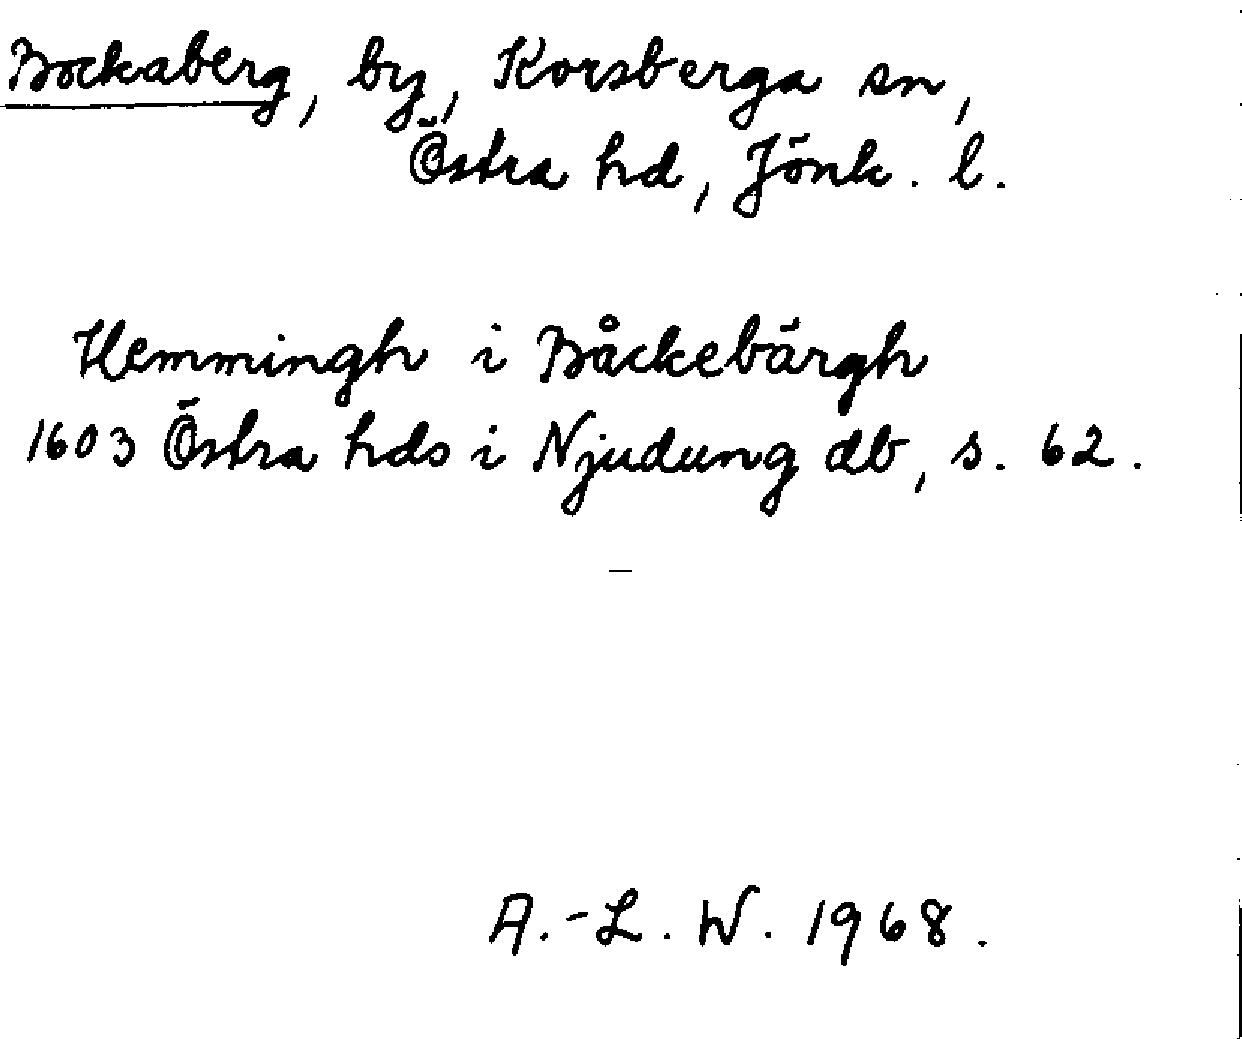 Bockaberg, by, Korsberga sn,
Östra hd, Jönk. l.
Hemmingh i Båckebärgh
1603 Östra hds i Njudung db, s. 62.
—
A.-L. W. 1968.